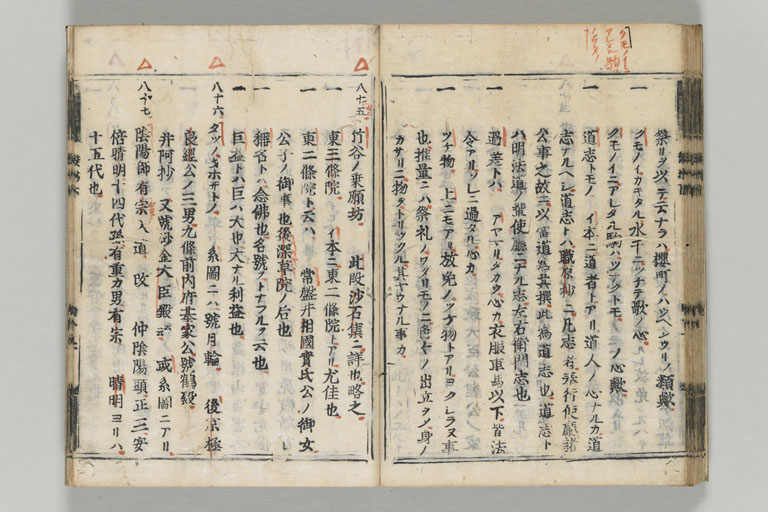 祭リヲ以テ云ナラハ櫻町ノ
類歟
一 クモノイカキタル水干ニツケテ歌ノ心
クモノイニアレタル駒ハツナクトモノ心歟
一 道志トモノ イ本ニ道者トアリ道人ノ心ナルカ道
志ナルヘシ道志トハ職原抄ニ凡志者
公事之故ニ以當道為其撰此為道志也道志ト
ハ明法道ノ輩使廳ニナル志左右衛門志也
一 過差トハ アヤマリタカウ心カ衣服車馬以下皆法
令アリソレニ過タル心カ
一 ツケ物 上ニモアリ放免ノツケ物トアリヨクシラヌ事
也推量ニハ祭礼ノワタリモノニ色々ノ出立ヲメ身ノ
カサリニ物ヲトリツクル其ヤウナル事カ
八十五 竹谷ノ乗願坊 此段沙石集ニ詳也略之
一 東三條院 イ本ニ東二條院トアリ尤佳也
東二條院ト云ハ 常盤井相國實氏公ノ御女
公子ノ御事也後深草院ノ后也
一 稱名トハ念佛也名號ヲトナフルヲ云也
一 巨益トハ巨ハ大也大ナル利益也
八十六 系圖ニハ號月輪 後京極
良經公ノ三男九條前内府基家公號鶴殿
井阿抄 又號沙金大臣殿云云 或系圖ニアリ
八十七 陰陽師有宗入道 改 仲陰陽頭正三安
倍晴明十四代孫有重力男有宗 晴明ヨリハ
十五代也